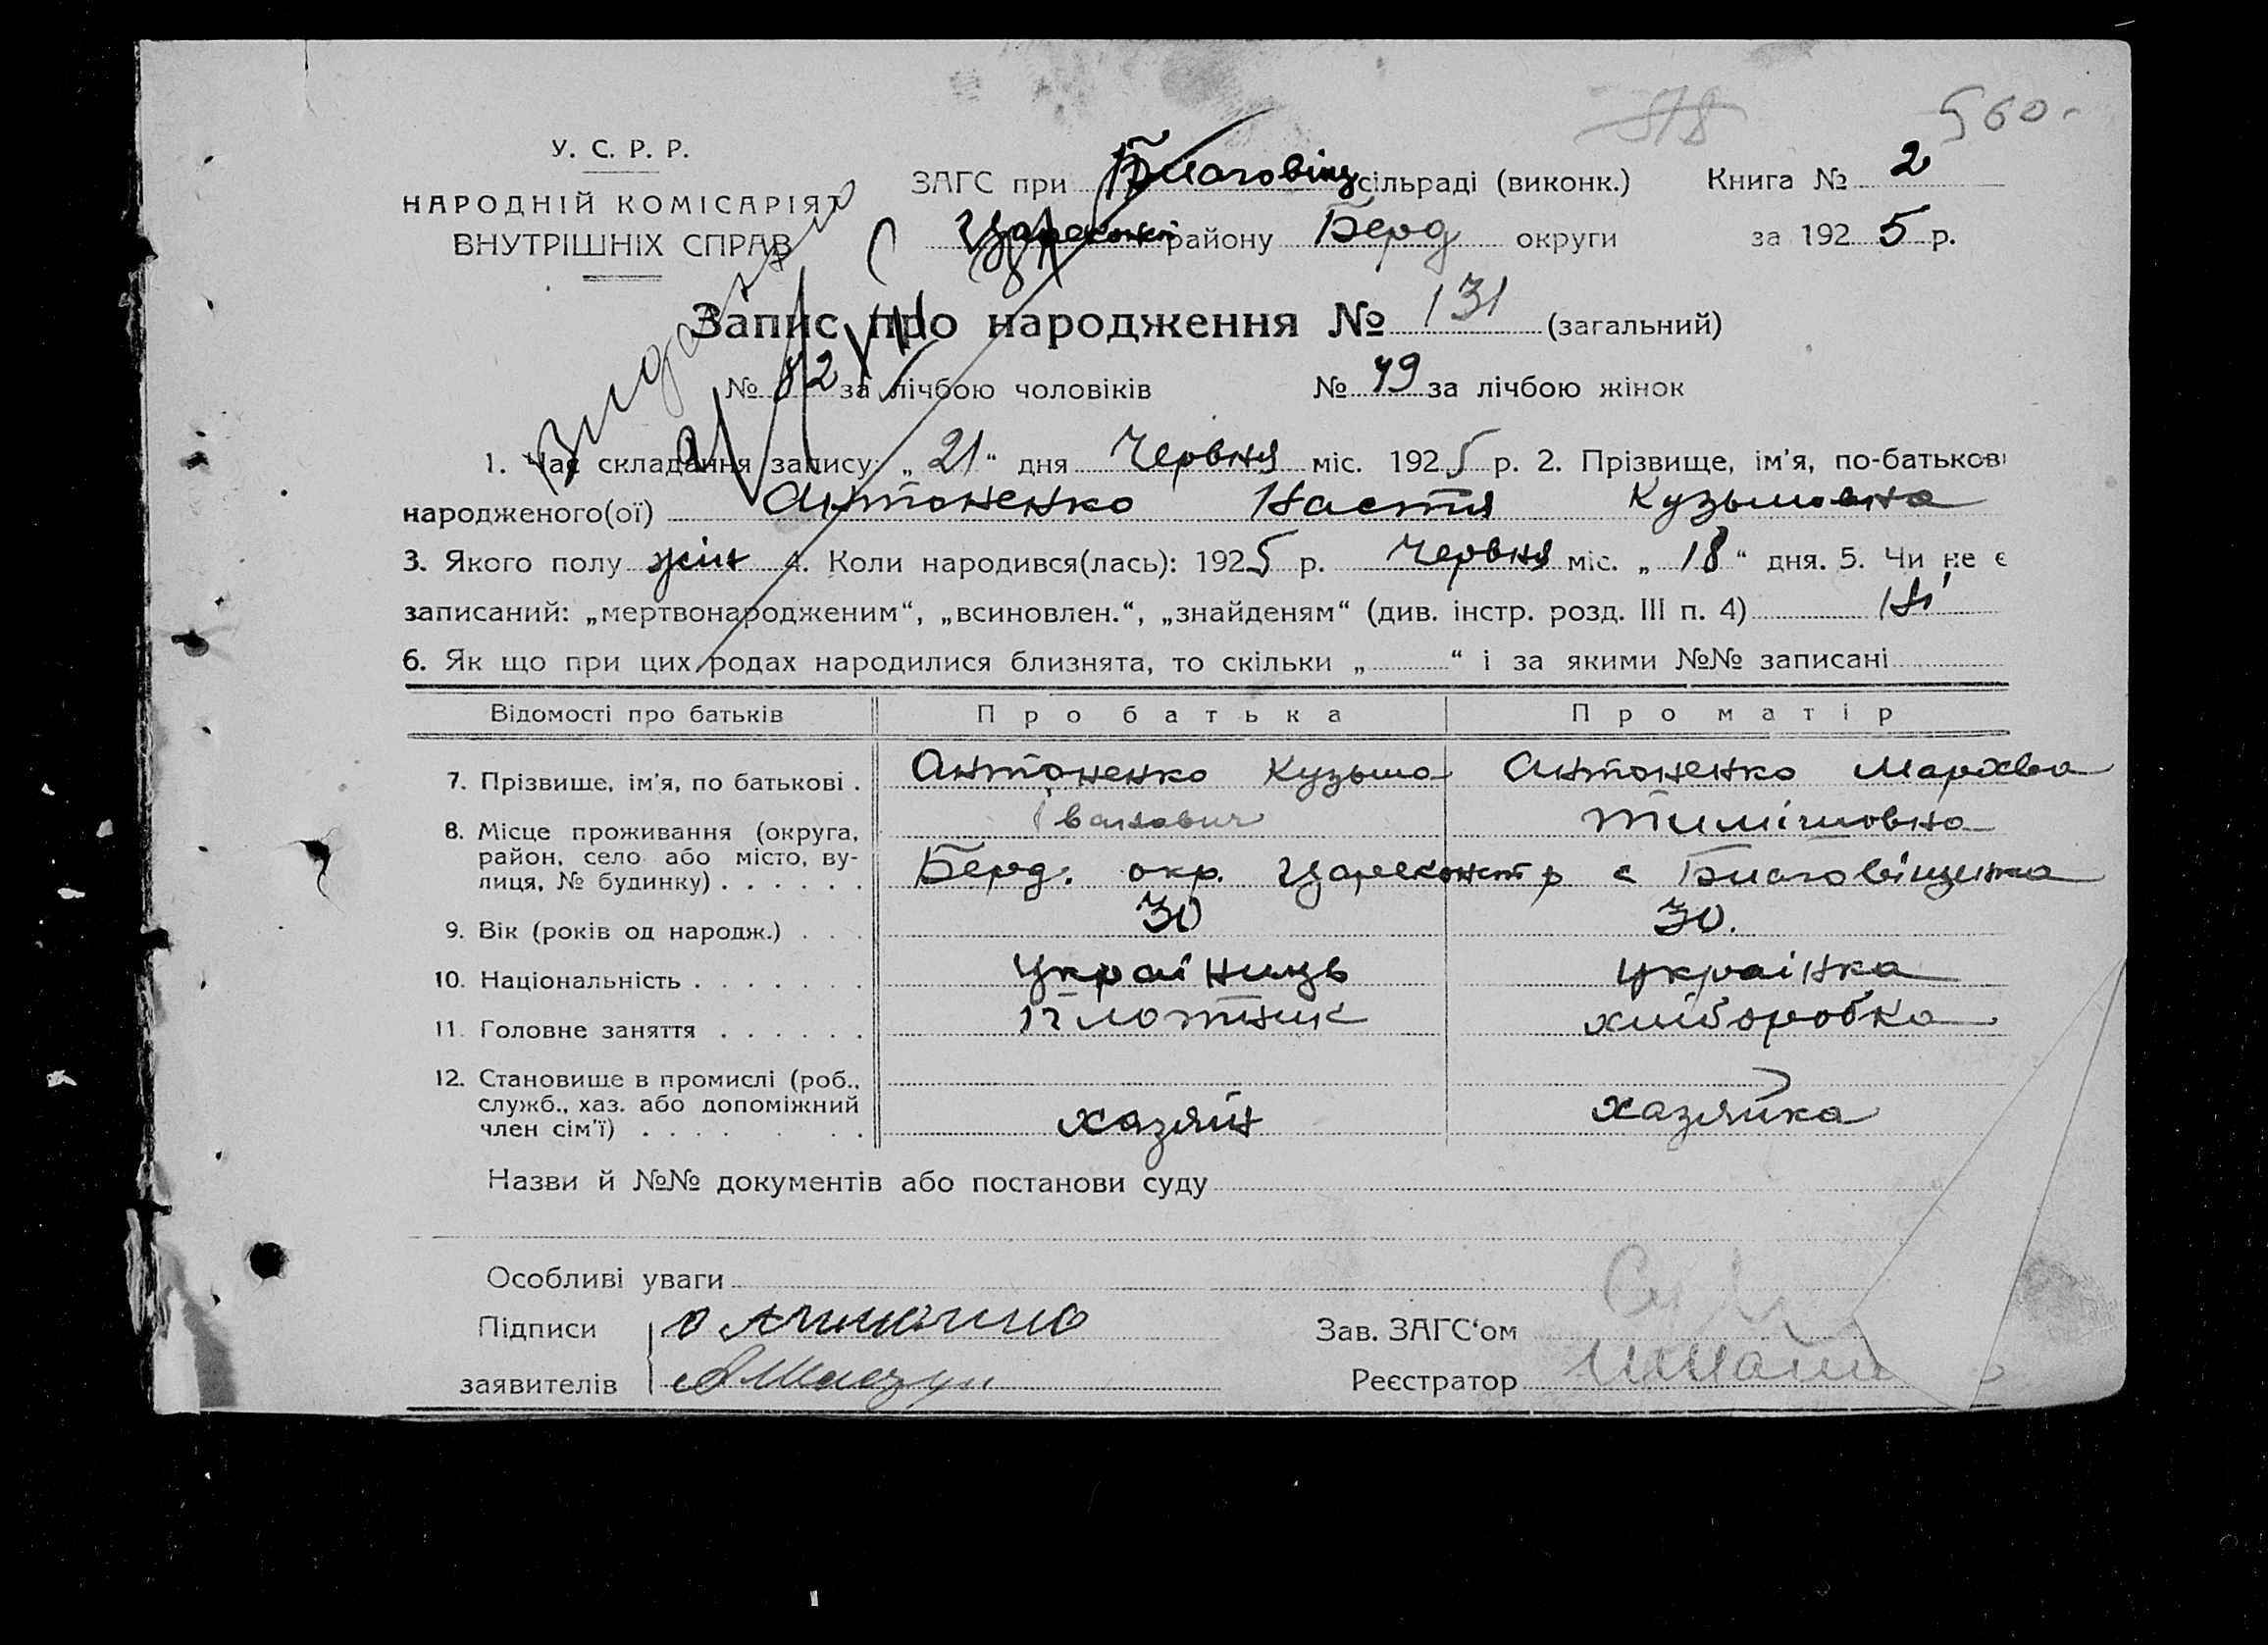 560
У. С. Р. Р.
НАРОДНІЙ КОМІСАРІЯТ
ВНУТРІШНІХ СПРАВ
ЗАГС при Благовіщ сільраді (виконк.) Книга № 2
Царекон району Берд округи за 1925 р.
Запис про народження № 131 (загальний)
№ 82 за лічбою чоловіків № 49 за лічбою жінок
1. Час складання запису: „21“ дня Червня міс. 1925 р. 2. Прізвище, ім'я, по-батькові
народженого(ої) Антоненко Настя Кузьмовна
3. Якого полу жін 4. Коли народився(лась): 1925 р. Червня міс. „18“ дня. 5. Чи не є
записаний: „мертвонародженим“, „всиновлен.“, „знайденям“ (див. інстр. розд. III п. 4) Ні
6. Як що при цих родах народилися близнята, то скільки „ “ і за якими №№ записані
Відомості про батьків Про батька Про матір
7. Прізвище, ім'я, по батькові . Антоненко Кузьма Антоненко Мархва
Іванович Тимішовна
8. Місце проживання (округа, район, село або місто, вулиця, № будинку) . . . . . . Берд. окр. Цареконст р с Благовіщинка
9. Вік (років од народж.) . . . 30 30.
10. Національність . . . . . . . Українць Українка
11. Головне заняття . . . . . . Плотник хліборобка
12. Становище в промислі (роб., служб., хаз. або допоміжний член сім'ї) . . . . . . хазяїн хазяйка
Назви й №№ документів або постанови суду
Особливі уваги
Підписи
заявителів
Зав. ЗАГС'ом
Реєстратор